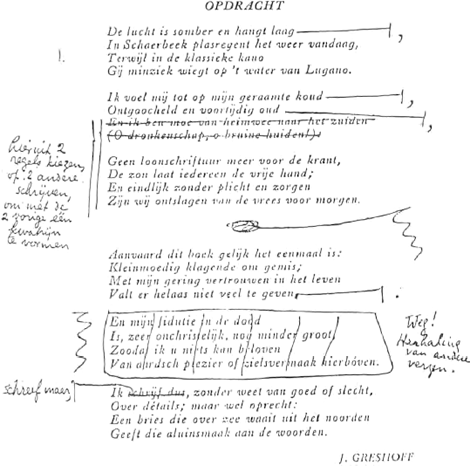 OPDRACHT
De lucht is somber en hangt laag,
1. In Schaerbeek plasregent het weer vandaag,
Terwijl in de klassieke kano
Gij minziek wiegt op 't water van Lugano.
Ik voel mij tot op mijn geraamte koud,
Ontgoocheld en voortijdig oud,
En ik ben moe van heimwee naar het zuiden
(O dronkenschap, o bruine huiden!)
hieruit 2
regels kiezen,
of 2 andere
schrijven,
om met de
2 vorige één
kwatrijn
te vormen
Geen loonschriftuur meer voor de krant,
De zon laat iedereen de vrije hand;
En eindlijk zonder plicht en zorgen
Zijn wij ontslagen van de vrees voor morgen.
Aanvaard dit boek gelijk het eenmaal is:
Kleinmoedig klagende om gemis;
Met mijn gering vertrouwen in het leven
Valt er helaas niet veel te geven.
En mijn fidutie in de dood
Is, zeer onchristelijk, nog minder groot,
Zoodat ik u niets kan beloven
Van aardsch plezier of zielsvermaak hierbóven.
Weg!
Herhaling
van andere
verzen.
schreef maar,
Ik schrijf dus, zonder weet van goed of slecht,
Over détails; maar wel oprecht:
Een bries die over zee waait uit het noorden
Geeft die aluinsmaak aan de woorden.
J. GRESHOFF